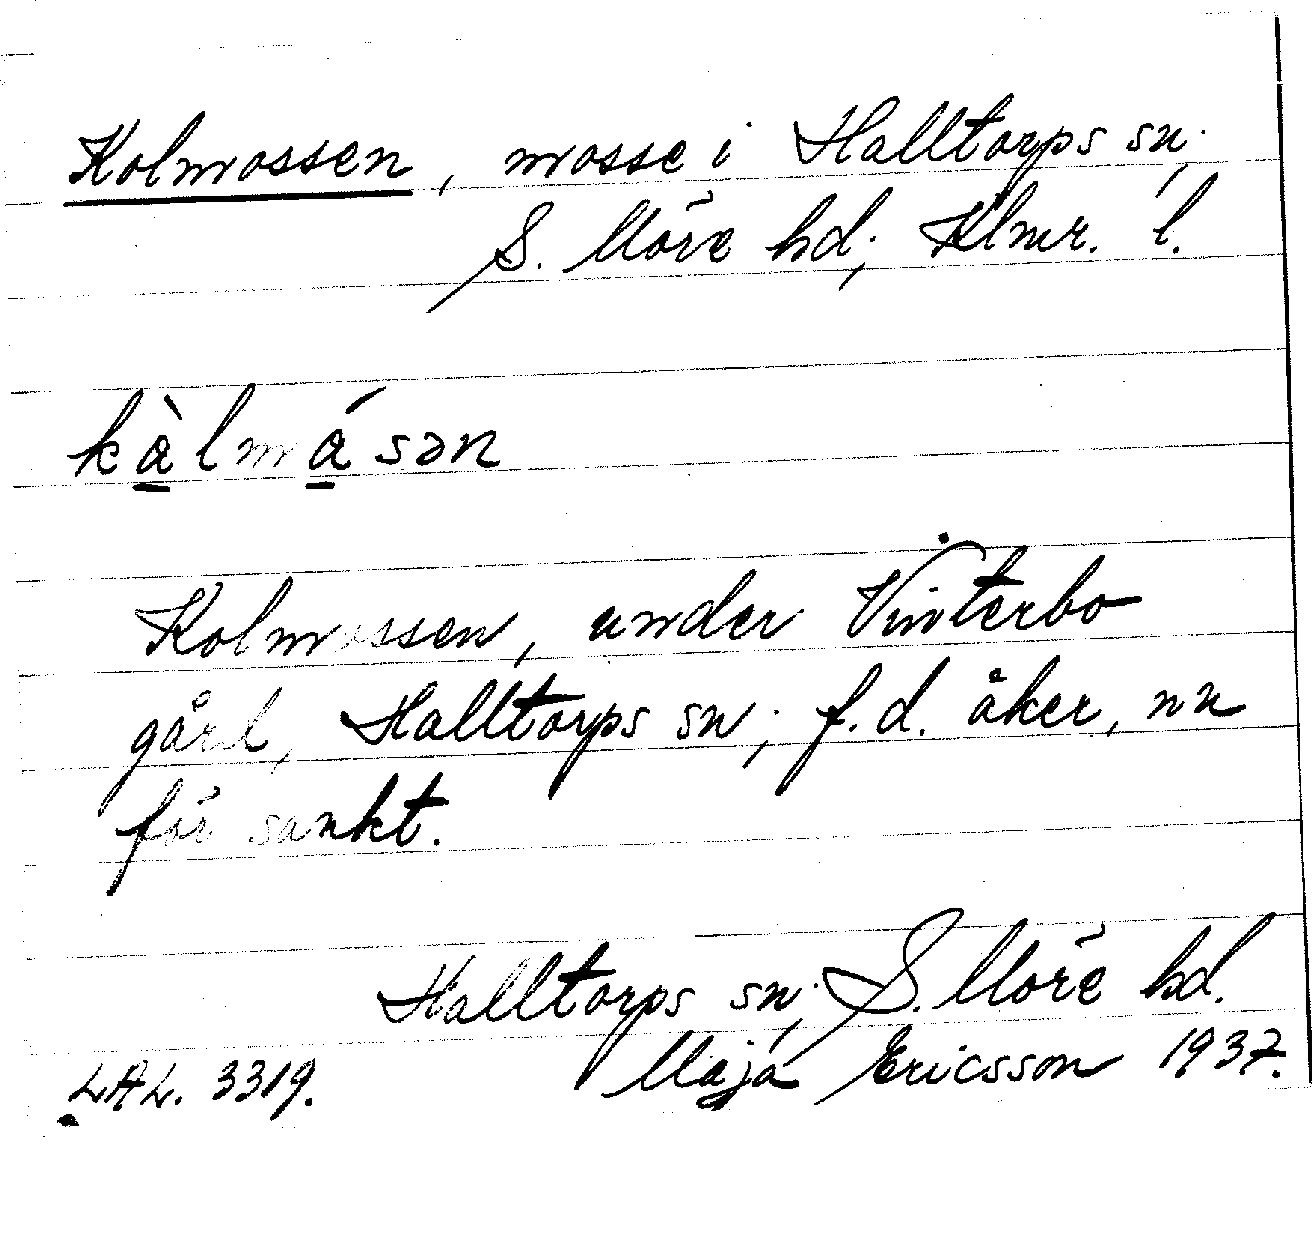 Kolmossen, mosse i Halltorps sn;
S. Möre hd; Klmr. l.
kàlmásən
Kolmossen, under Vinterbo
gård, Halltorps sn; f.d. åker, nu
för sankt.
Halltorps sn; S. Möre hd.
LAL. 3319. Maja Ericsson 1937.